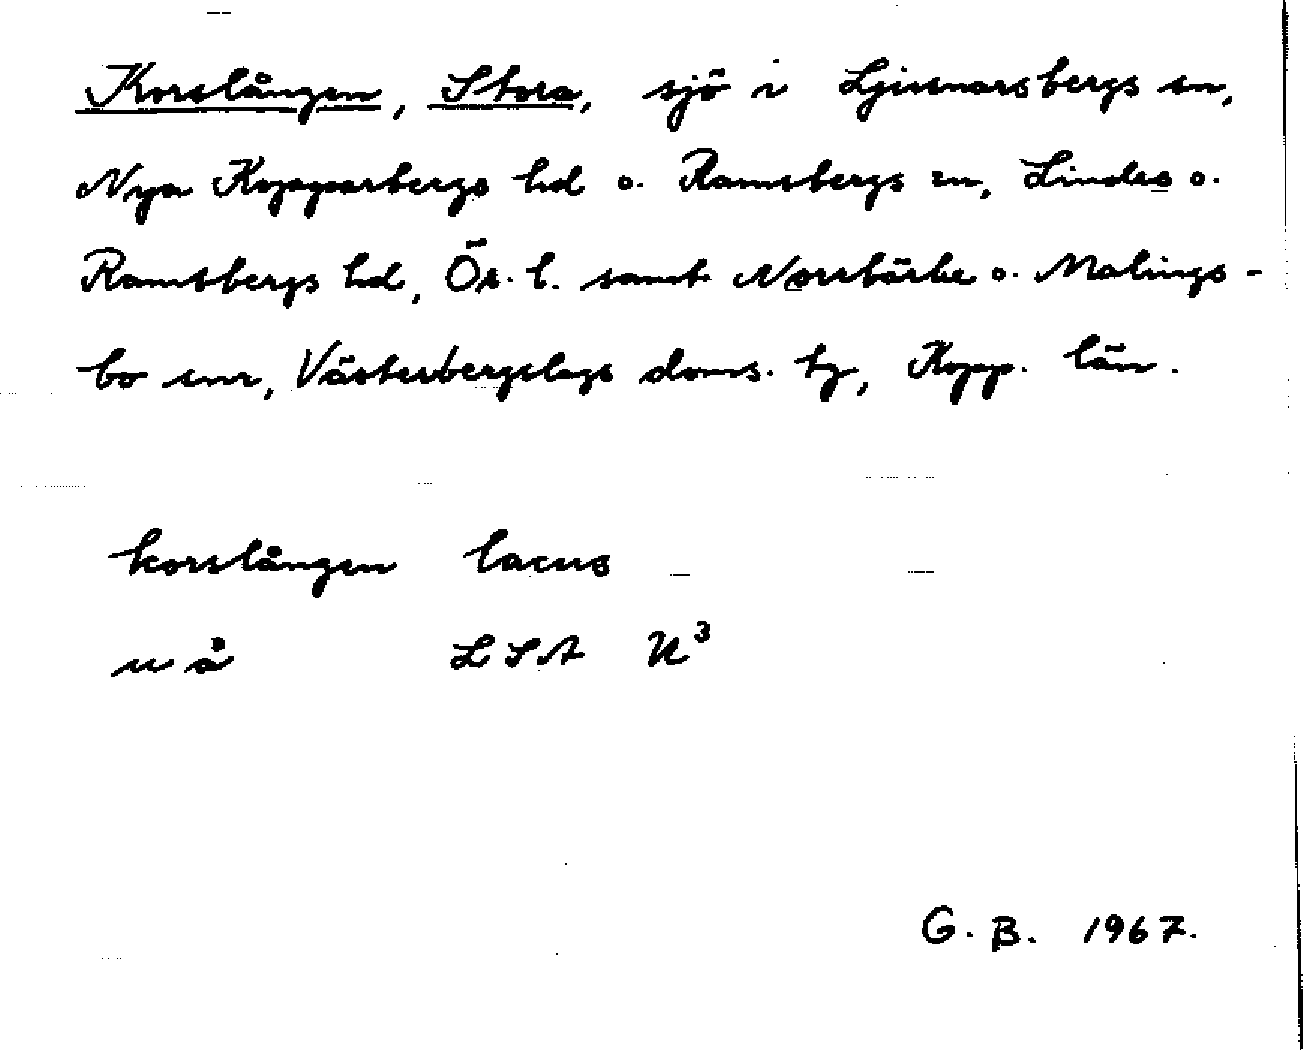 Korslången, Stora, sjö i Ljusnarsbergs sn,
Nya Kopparbergs hd o. Ramsbergs sn, Lindes o.
Ramsbergs hd, Ör. l. samt Norrbärke o. Malings-
bo snr, Västerbergslags doms. tg, Kopp. län.
korslången lacus
u å LSA U³
G. B. 1967.